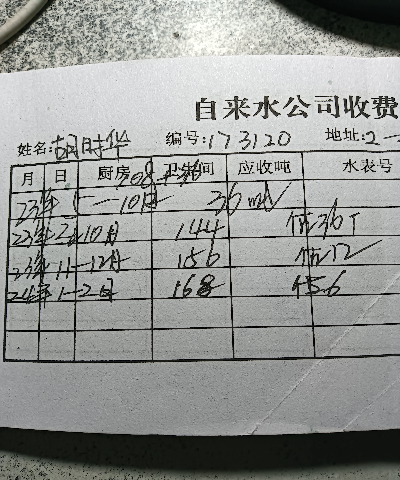 自来水公司收费
姓名:胡时华 编号:173120 地址:2-
月 日 厨房 卫生间 应收吨 水表号
108
23年 1—10月 36吨
23年 10月 144 36T
23年 11-12月 156 12
24年 1-2月 168